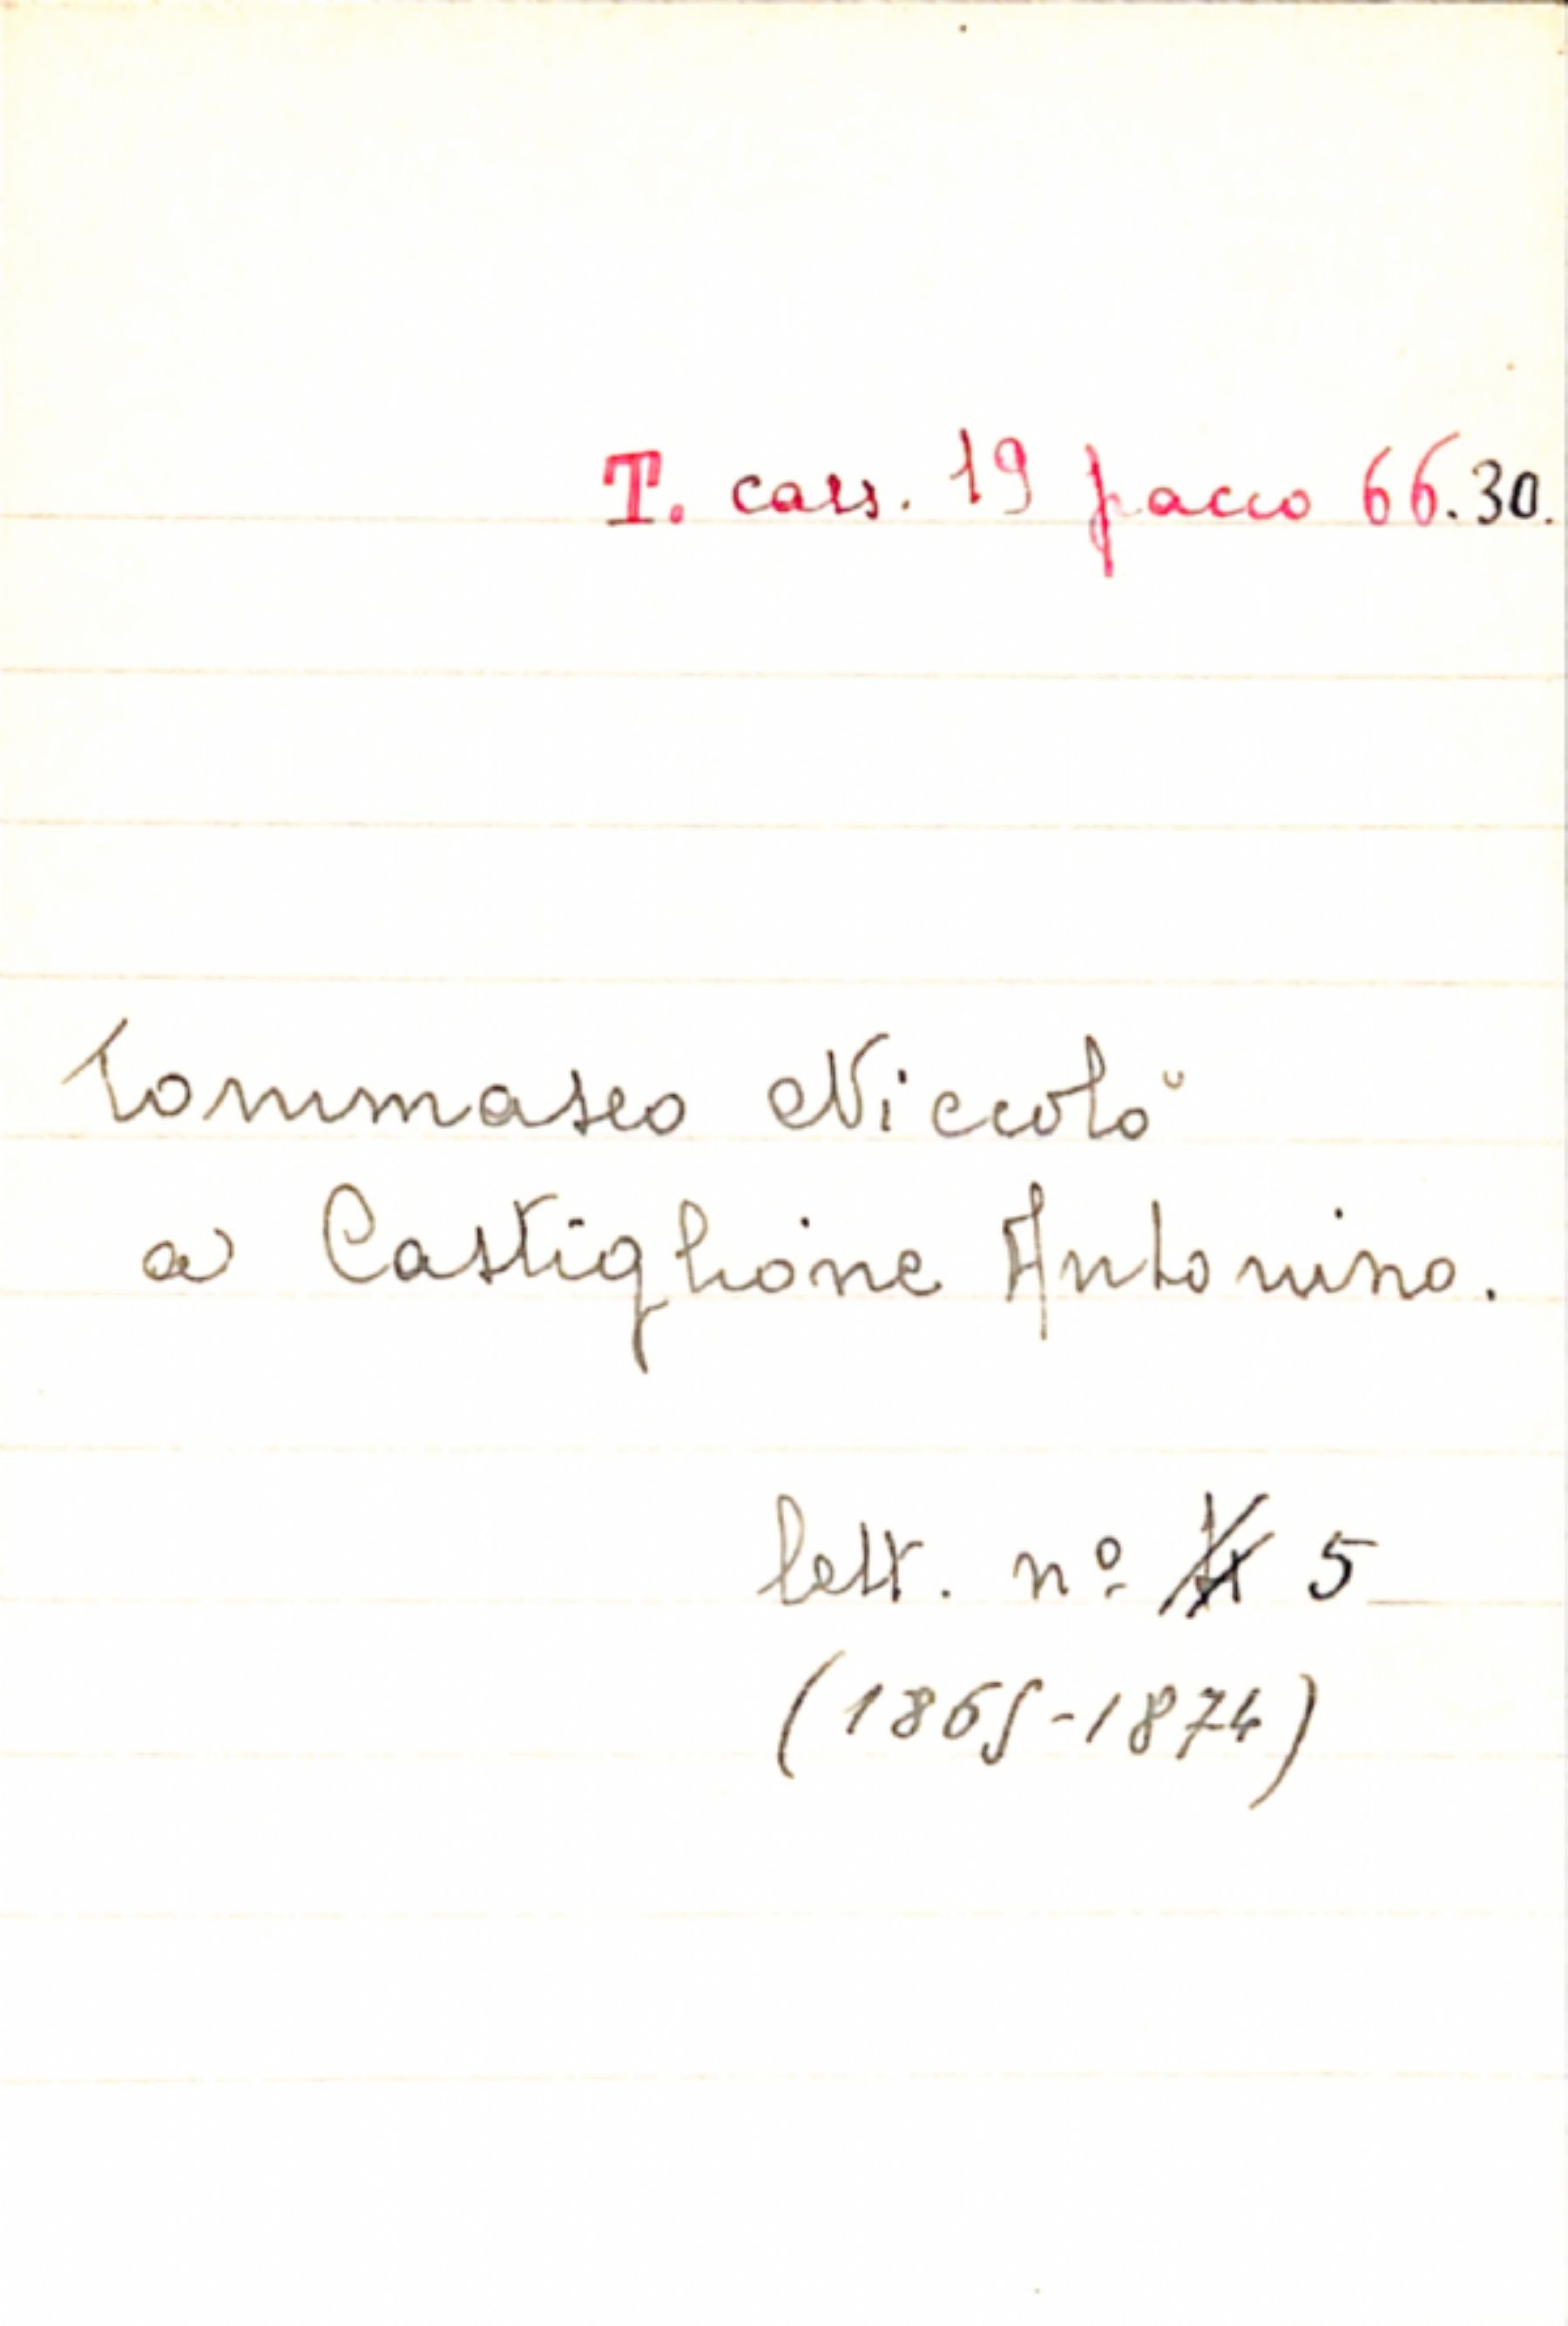 T. cass. 19 pacco 66.30.
Tommaseo Niccolò
a Castiglione Antonino.
lett. nº 5
(1865-1874)